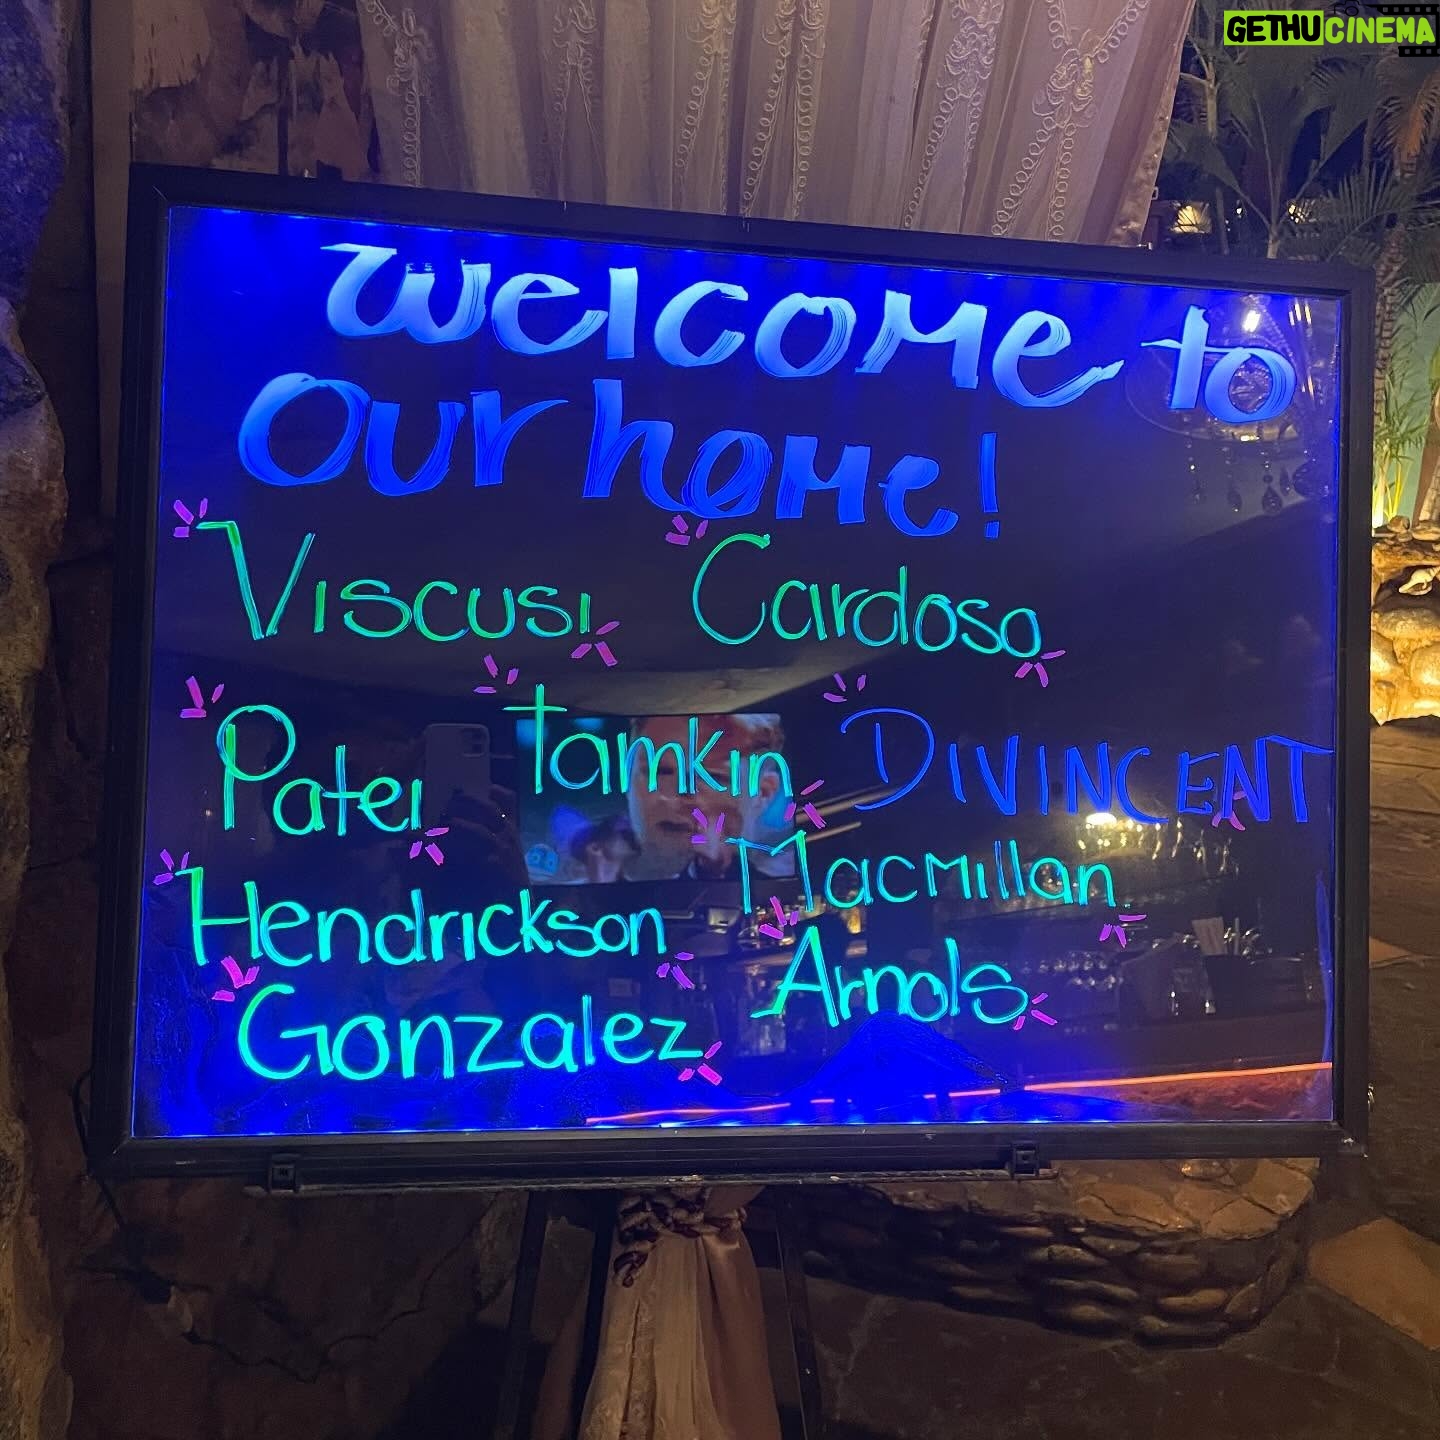 GETHUCINEMA
Welcome to
our home!
Viscusi Cardoso
Patel Tamkin DIVINCENT
Hendrickson Macmillan
Gonzalez Arnols